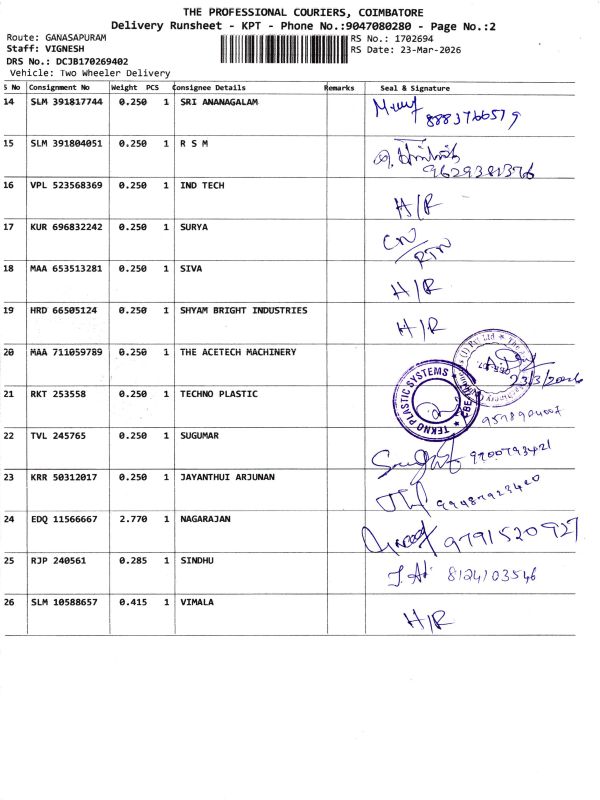 THE PROFESSIONAL COURIERS, COIMBATORE
Delivery Runsheet - KPT - Phone No.:9047080280 - Page No.:2
Route: GANASAPURAM
RS No.: 1702694
Staff: VIGNESH
RS Date: 23-Mar-2026
DRS No.: DCJB170269402
Vehicle: Two Wheeler Delivery
S No Consignment No Weight PCS Consignee Details Remarks Seal & Signature
14 SLM 391817744 0.250 1 SRI ANANAGALAM
8883766579
15 SLM 391804051 0.250 1 R S M
9629381376
16 VPL 523568369 0.250 1 IND TECH H/R
17 KUR 696832242 0.250 1 SURYA CN/RTN
18 MAA 653513281 0.250 1 SIVA H/R
19 HRD 66505124 0.250 1 SHYAM BRIGHT INDUSTRIES H/R
20 MAA 711059789 0.250 1 THE ACETECH MACHINERY
23/3/2026
21 RKT 253558 0.250 1 TECHNO PLASTIC
TEKNO PLASTIC SYSTEMS CBE
22 TVL 245765 0.250 1 SUGUMAR
23 KRR 50312017 0.250 1 JAYANTHUI ARJUNAN
24 EDQ 11566667 2.770 1 NAGARAJAN 9791520927
25 RJP 240561 0.285 1 SINDHU 8124103546
26 SLM 10588657 0.415 1 VIMALA H/R